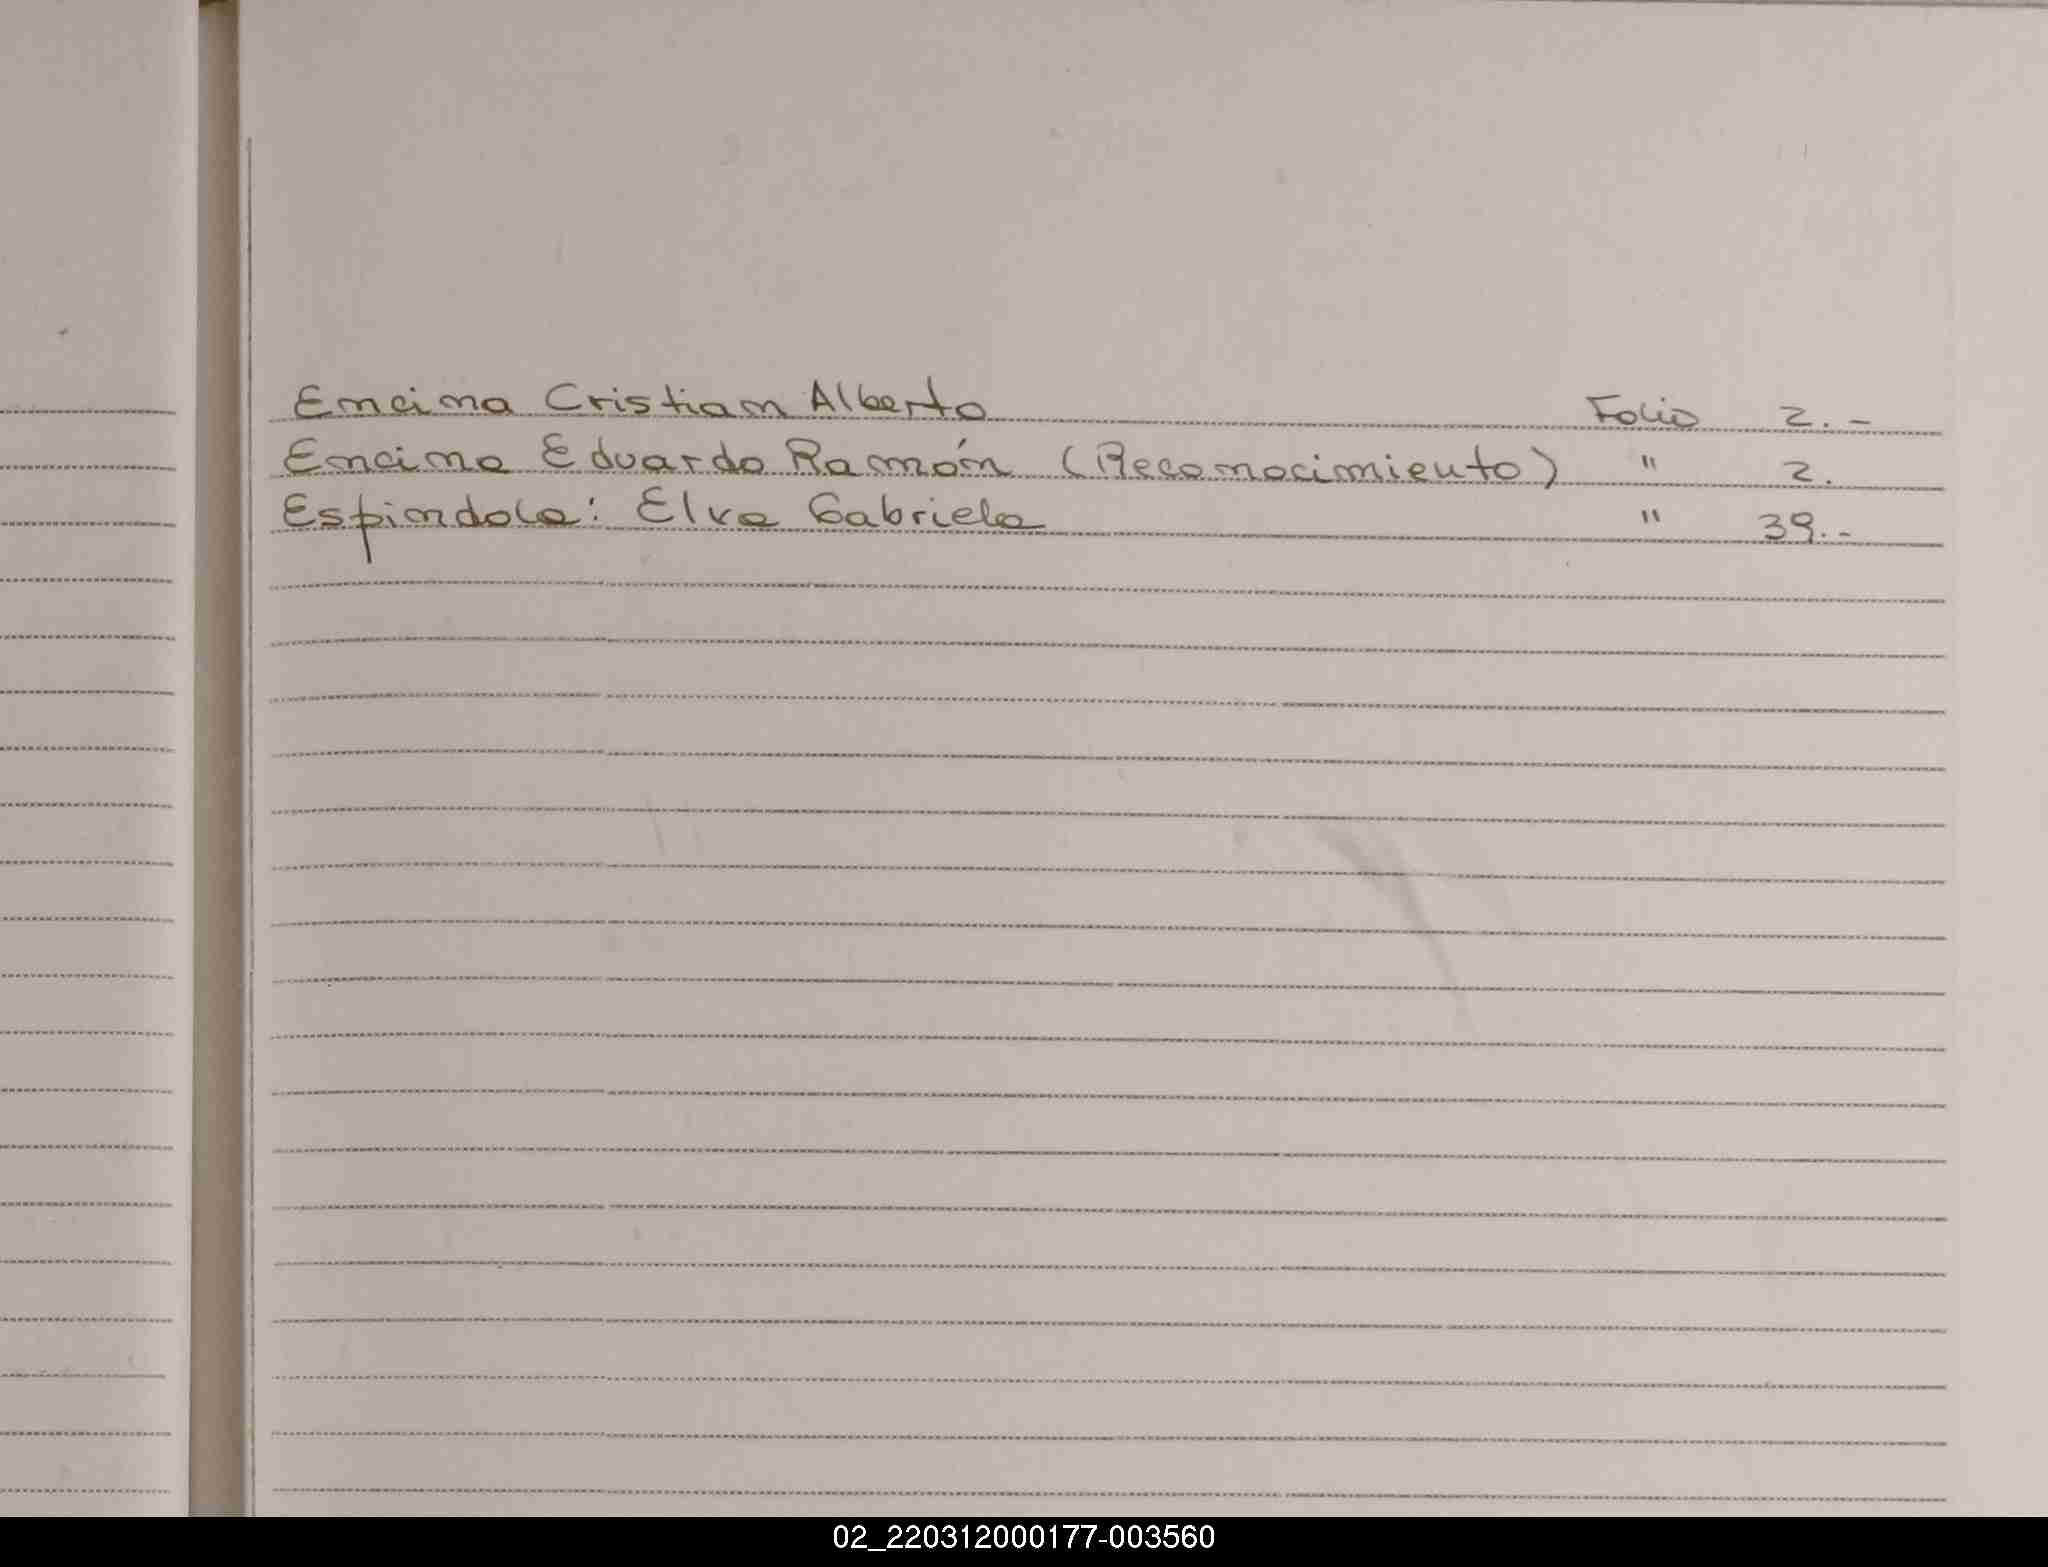 Encina Cristian Alberto Folio 2.-
Encina Eduardo Ramón (Reconocimiento) " 2.
Espindola: Elva Gabriela " 39.-
02_220312000177-003560